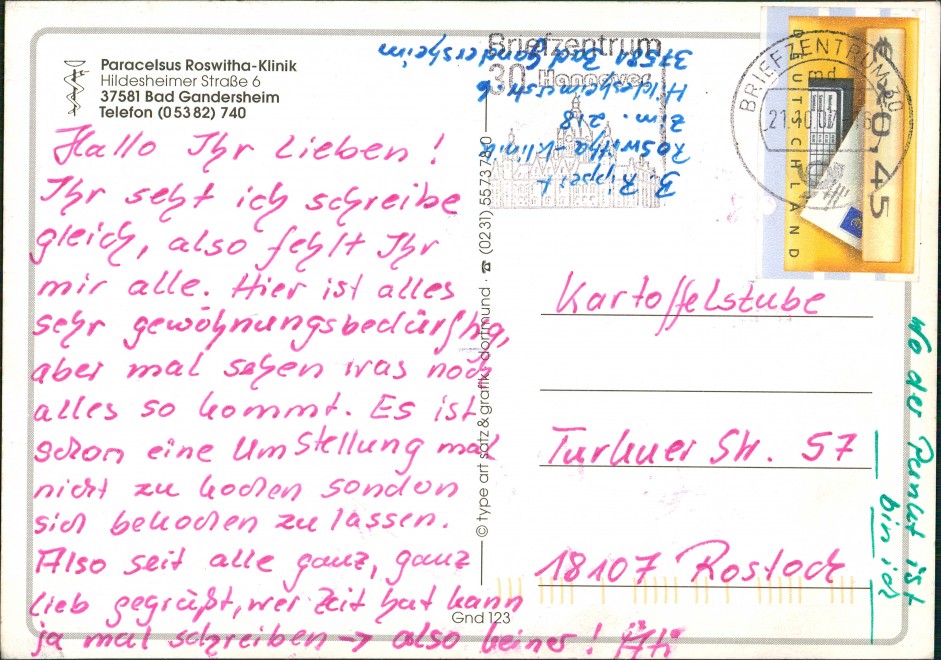 Paracelsus Roswitha-Klinik
Hildesheimer Straße 6
37581 Bad Gandersheim
Telefon (05382) 740
Hallo Ihr Lieben!
Ihr seht ich schreibe
gleich, also fehlt Ihr
mir alle. Hier ist alles
sehr gewöhnungsbedürftig,
aber mal sehen was noch
alles so kommt. Es ist
schon eine Umstellung mal
nicht zu kochen sondon
sich bekochen zu lassen.
Also seit alle ganz, ganz
lieb gegrüßt, wer Zeit hat kann
ja mal schreiben → also keiner!
© type art satz & grafik · dortmund · ☎ (0231) 557378-0
Gnd 123
B. Rippert
Roswitha-Klinik
Zim. 218
Hildesheimerstr. 6
37581 Bad Gandersheim
Briefzentrum
30 Hannover
BRIEFZENTRUM 30
md
DEUTSCHLAND
€ 0,45
Kartoffelstube
Turkuer Str. 57
18107 Rostock
Wo der Punkt ist
bin ich